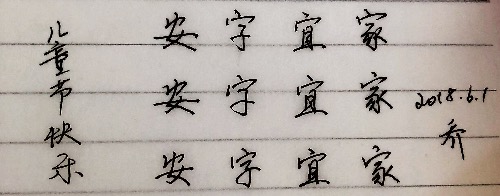 儿童节快乐
安字宜家
安字宜家
安字宜家
2018.6.1
乔